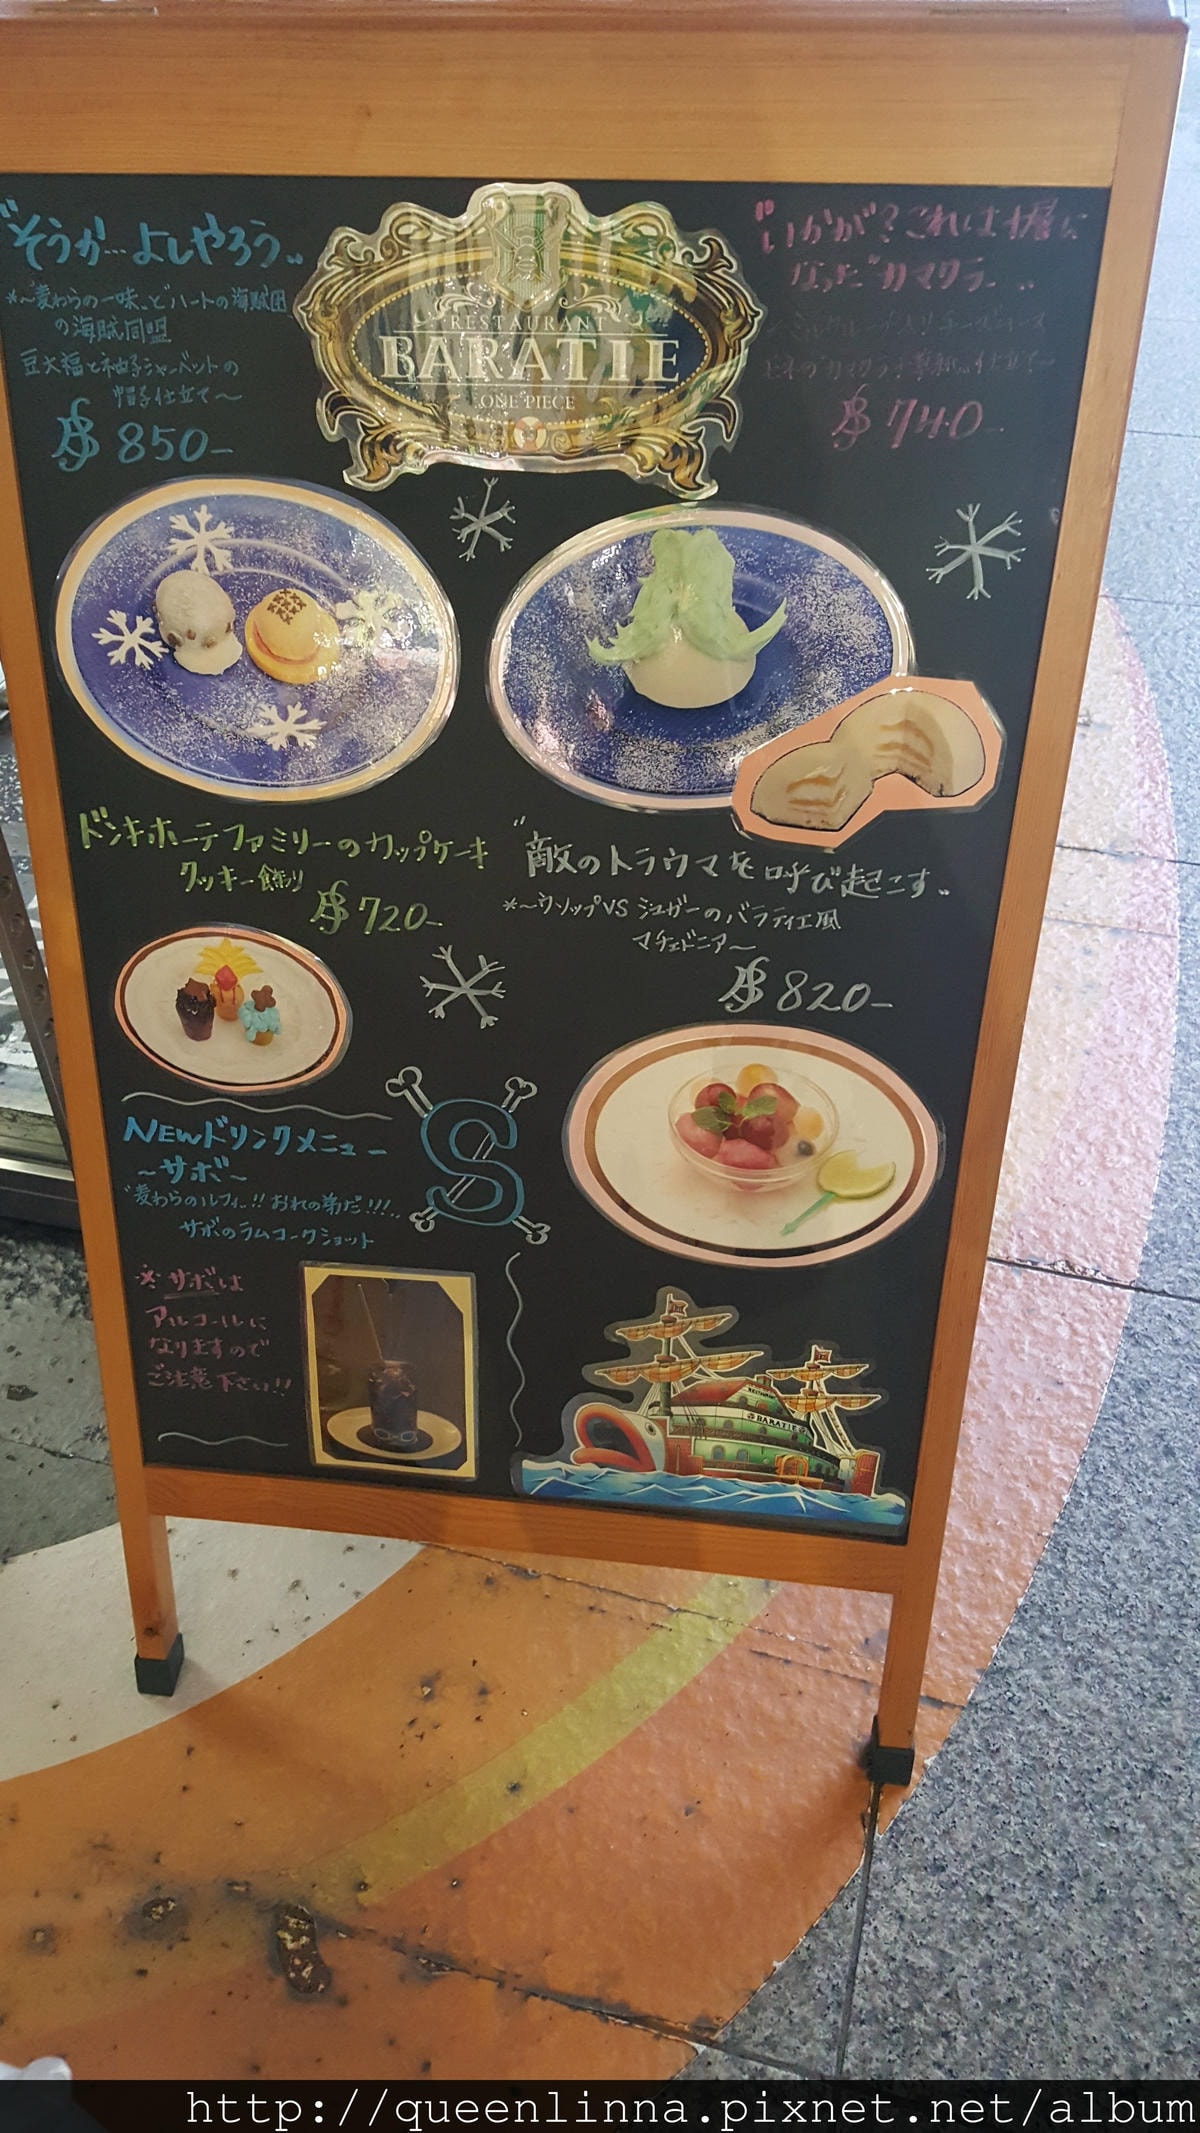 "そうか…よしやろう"
*〜"麦わらの一味"と"ハートの海賊団"
の海賊同盟
豆大福と柚子シャーベットの
帽子仕立て〜
850-
RESTAURANT
BARATIE
ONE PIECE
"いかが?これは
なった"カマクラ"
740-
ドンキホーテファミリーのカップケーキ
クッキー飾り
720-
"敵のトラウマを呼び起こす"
*〜ウソップVSシュガーのバラティエ風
マチェドニア〜
820-
NEWドリンクメニュー
〜サボ〜
"麦わらのルフィ!!おれの弟だ!!!"
サボのラムコークショット
S
※サボは
アルコールに
なりますので
ご注意下さい!!
RESTAURANT
BARATIE
http://queenlinna.pixnet.net/album